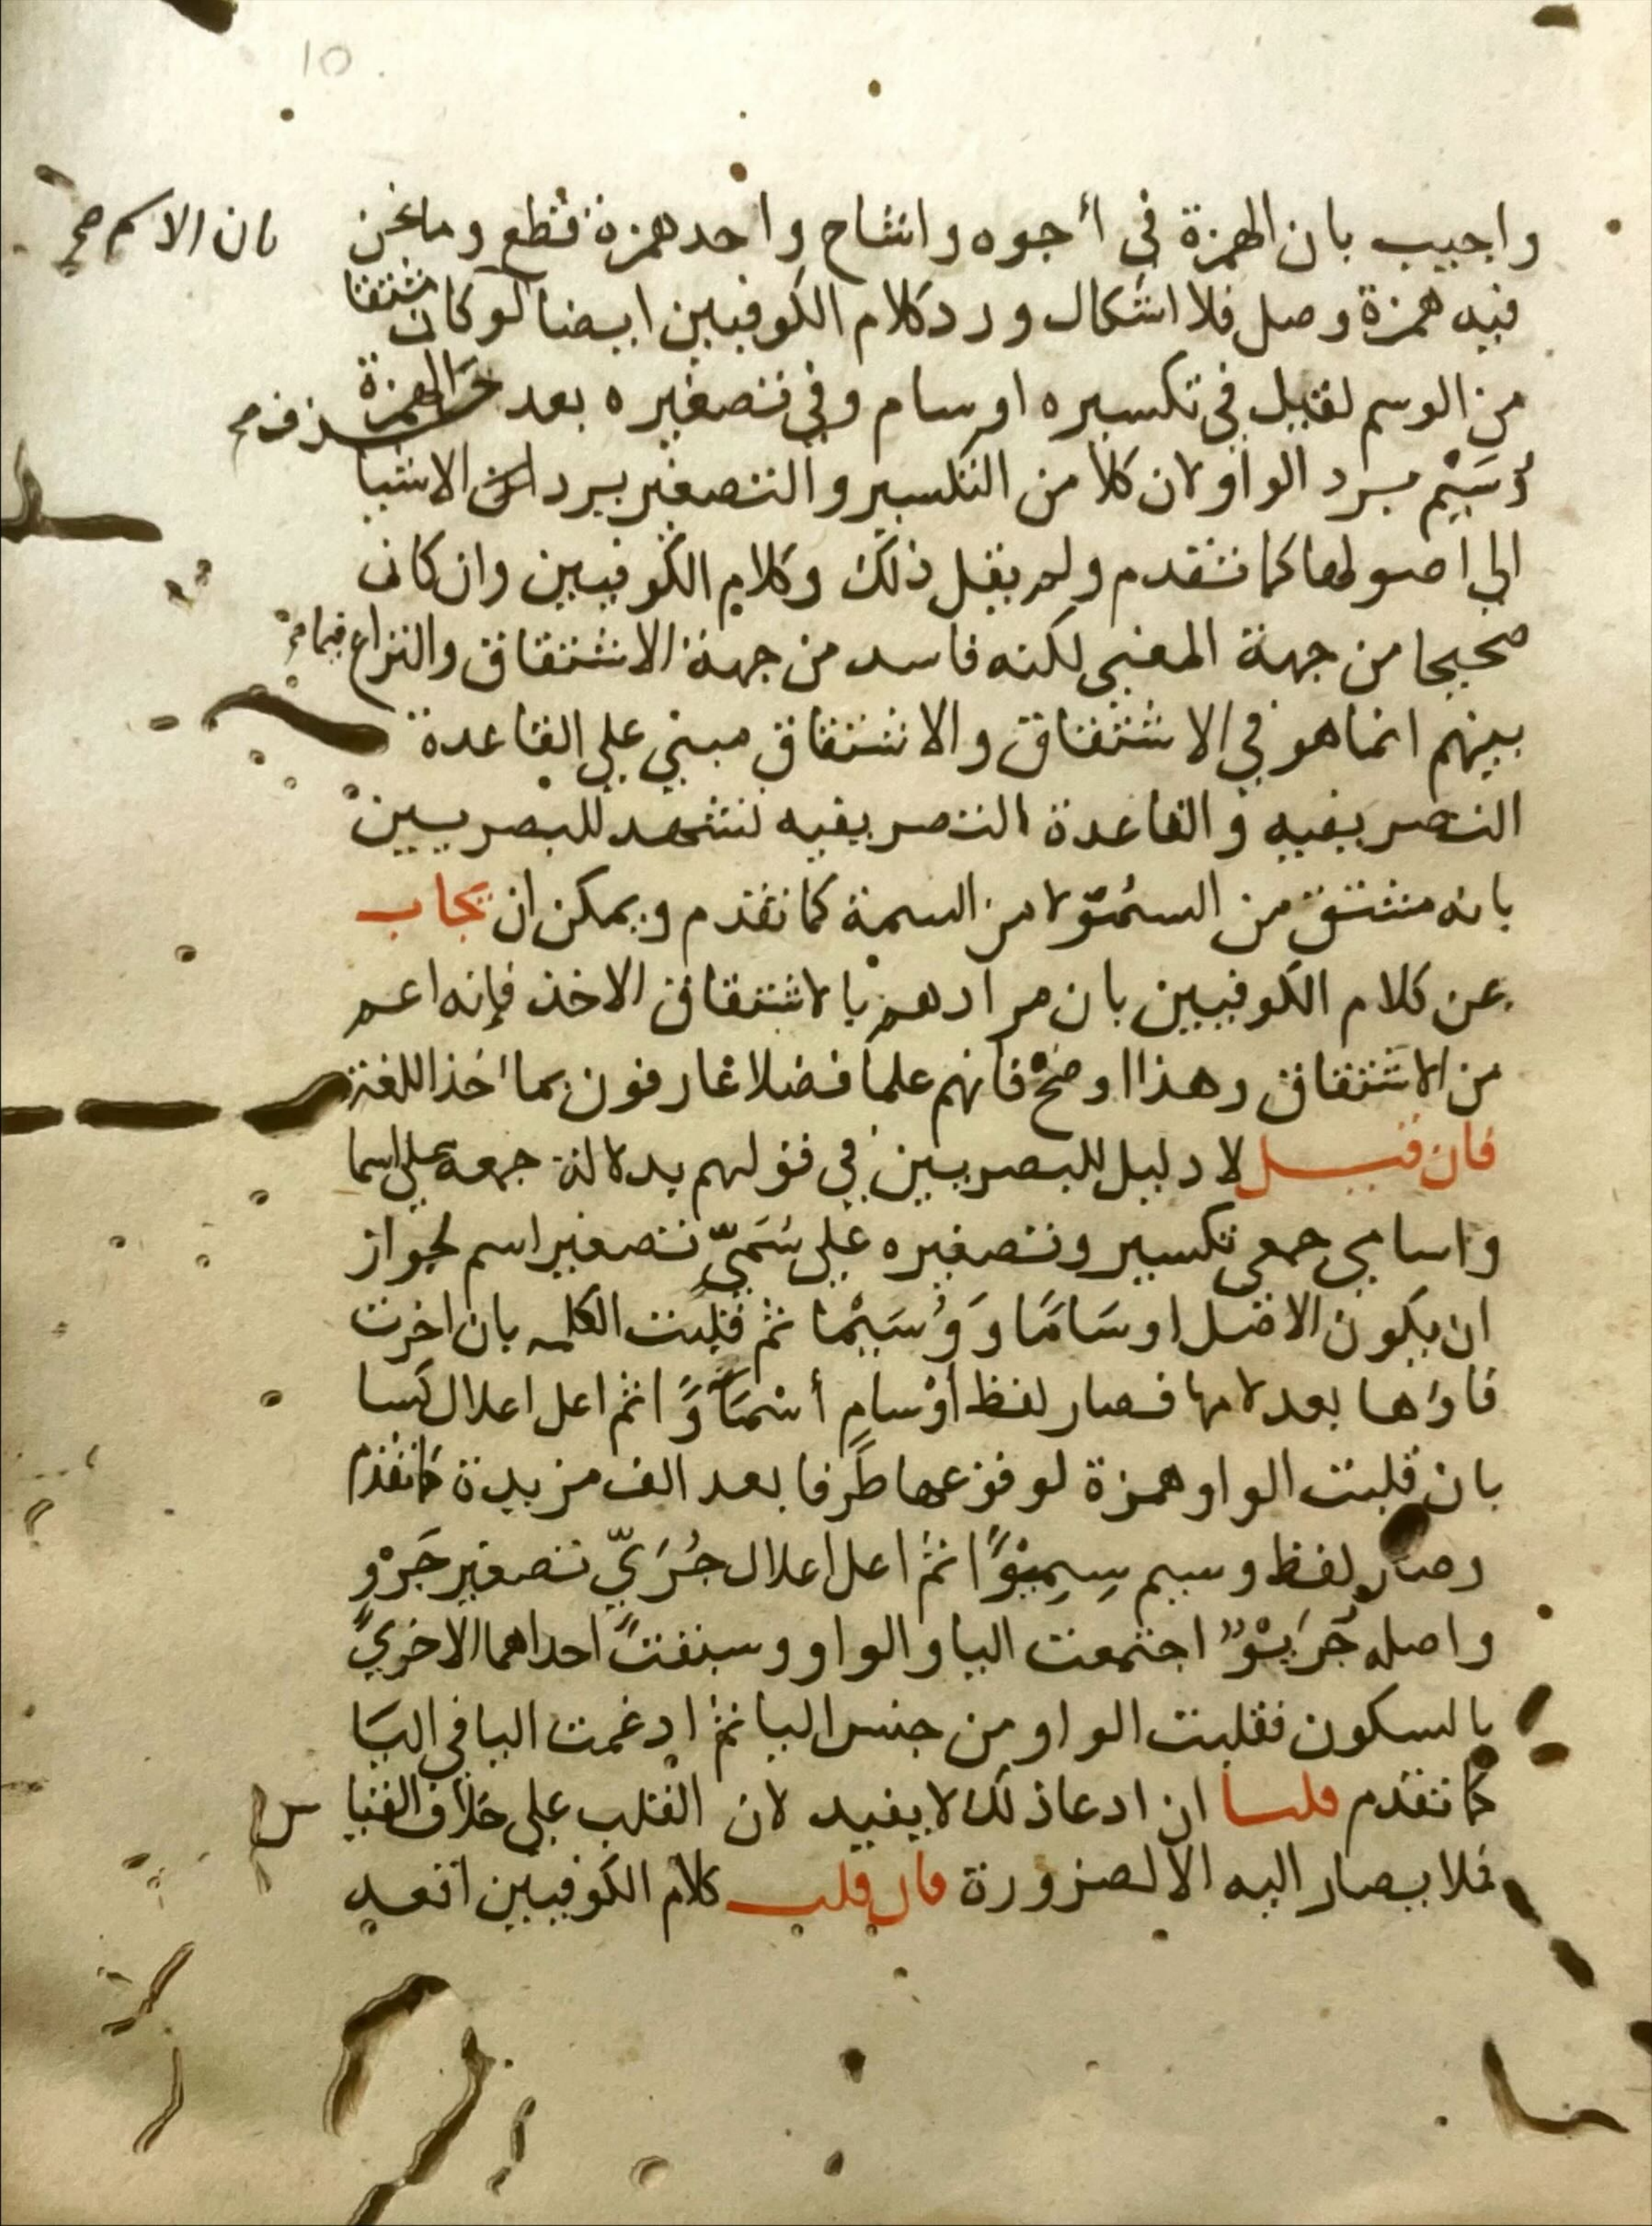 10
واجيب بان الهمزة في أجوه واشاح واحد همزة قطع وما نحن
بان الاسم صح
فيه همزة وصل فلا اشكال ورد كلام الكوفيين ايضا لو كان مشتقا
من الوسم لقيل في تكسيره اوسام وفي تصغيره بعد حذف الهمزة
وُسَيْم برد الواو لان كلا من التكسير والتصغير يرد الاشيا
الي اصولها كما تقدم ولم يقل ذلك وكلام الكوفيين وان كان
صحيحا من جهة المعني لكنه فاسد من جهة الاشتقاق والنزاع فيما مر
بينهم انما هو في الاشتقاق والاشتقاق مبني علي القاعدة
التصريفيه والقاعدة التصريفيه تشهد للبصريين
بانه مشتق من السُمُوّ لا من السمة كما تقدم ويمكن ان يجاب
عن كلام الكوفيين بان مرادهم بالاشتقاق الاخذ فإنه اعم
من الاشتقاق وهذا اوضح فانهم علما فضلا عارفون بمأخذ اللغة
فان قيل لا دليل للبصريين في قولهم بدلالة جمعه علي اسما
واسامي جمعي تكسير وتصغيره علي سُمَيّ تصغير اسم لجواز
ان يكون الاصل اوسَامًا وَوُسَيْمًا ثم قلبت الكلمه بان اخرت
فاؤها بعد لامها فصار لفظ أوْسام أسْمَاوًا ثم اعل اعلال كسا
بان قلبت الواو همزة لوقوعها طَرفا بعد الف مزيدة كما تقدم
وصار لفظ وسيم سِمِيْوًا ثم اعل اعلال جُرَيّ تصغير جَرْوٍ
واصله جُرَيْوٌ اجتمعت اليا والواو وسبقت احداهما الاخري
بالسكون فقلبت الواو من جنس اليا ثم ادغمت اليا في اليَا
كما تقدم قلنا ان ادعا ذلك لا يفيد لان القلب علي خلاف القيا
س
فلا يصار اليه الا لضرورة فان قلت كلام الكوفيين اقعد